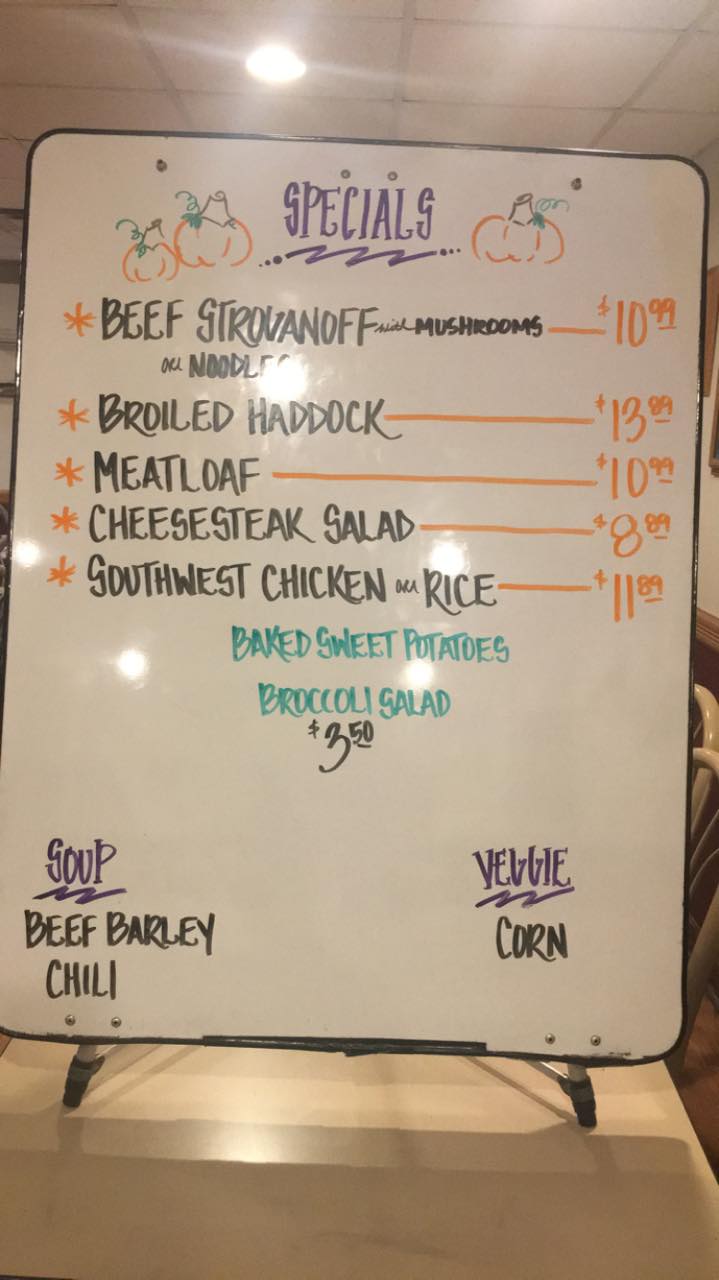 SPECIALS
* BEEF STROVANOFF with MUSHROOMS $10.99
over NOODLES
* BROILED HADDOCK $13.89
* MEATLOAF $10.99
* CHEESESTEAK SALAD $8.89
* SOUTHWEST CHICKEN over RICE $11.89
BAKED SWEET POTATOES
BROCCOLI SALAD
$3.50
SOUP
BEEF BARLEY
CHILI
VEGGIE
CORN